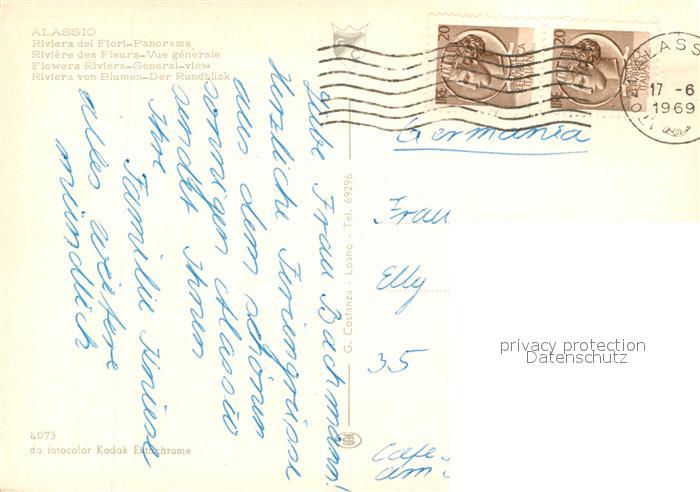 ALASSIO
Riviera dei Fiori-Panorama
Rivière des Fleurs-Vue générale
Flowers Riviera-General-view
Riviera von Blumen-Der Rundblick
Liebe Frau Bachmann!
Herzliche Feriengrüsse
aus dem schönen
sonnigen Alassio
sendet Ihnen
Ihre
Familie
alles weitere
mündlich
4073
da fotocolor Kodak Ektachrome
G. Costanza - Loano - Tel. 69296
20
LIRE
20
LIRE
ALASS
17 - 6
1969
Germania
Frau
Elly
35
Cafe
am
privacy protection
Datenschutz